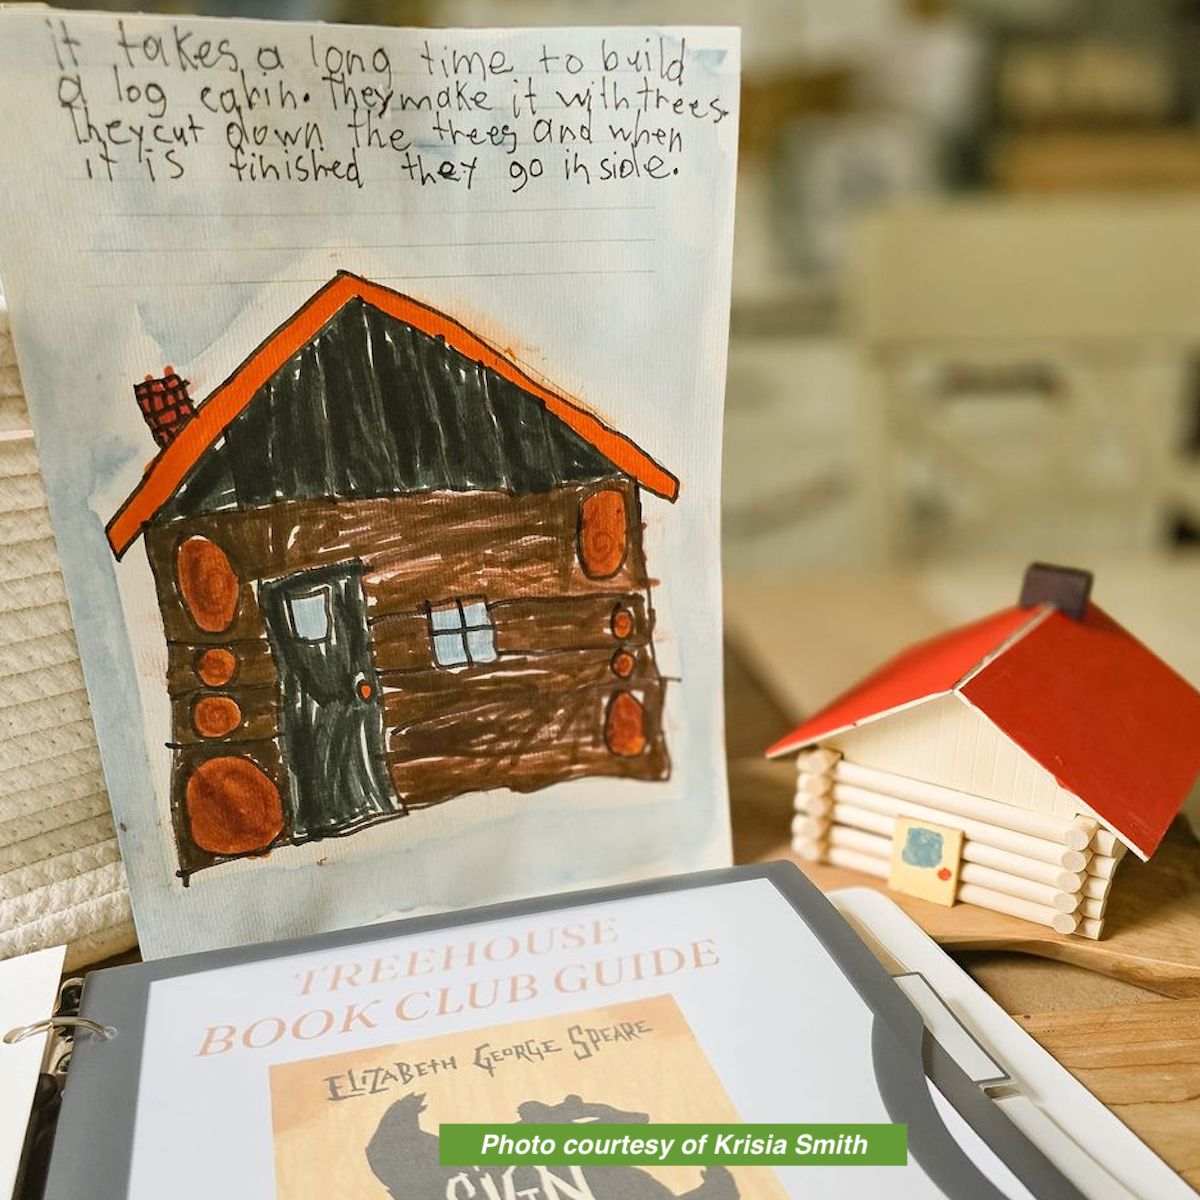 it takes a long time to build
a log cabin. They make it with trees.
They cut down the trees and when
it is finished they go inside.
TREEHOUSE
BOOK CLUB GUIDE
ELIZABETH GEORGE SPEARE
SIGN
Photo courtesy of Krisia Smith